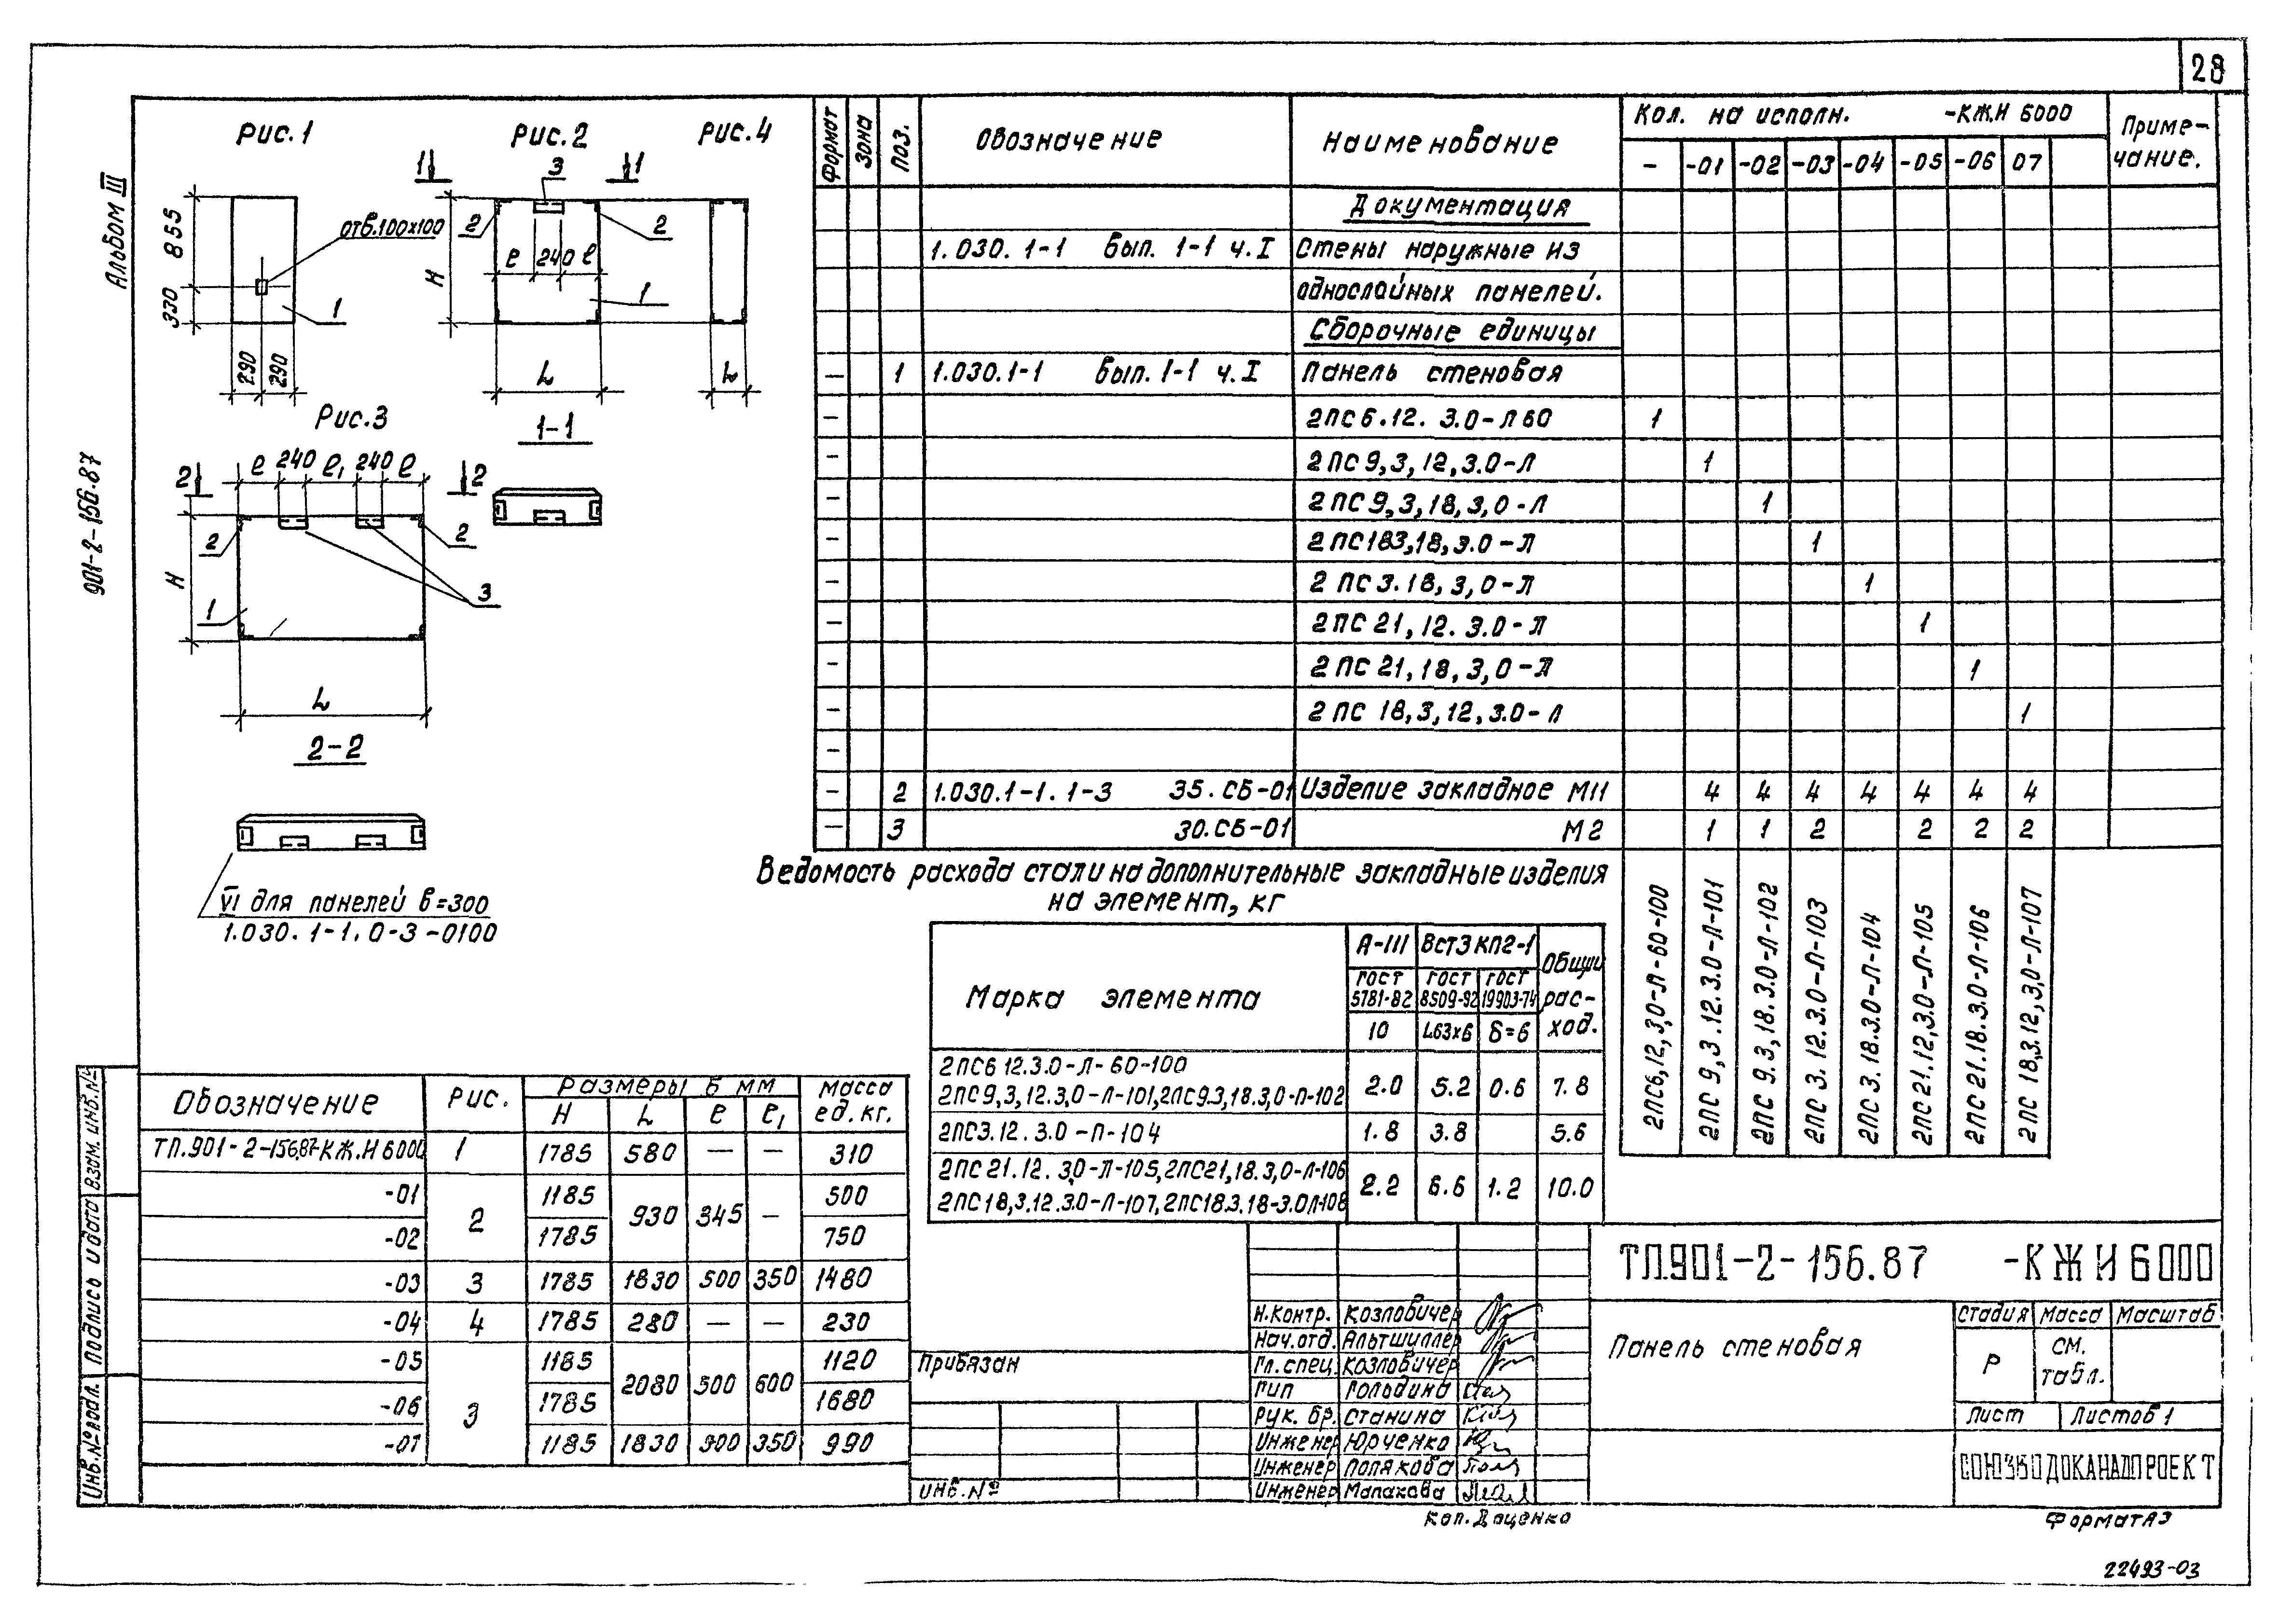 28
Альбом III
901-2-156.87
Рис.1
Рис.2
Рис.4
855
330
отв.100х100
1
290
290
1
1
3
2
2
H
е
240
е
1
L
L
1-1
Рис.3
2
2
е
240
е₁
240
е
2
2
H
1
3
L
2-2
VI для панелей в=300
1.030.1-1.0-3-0100
Формат
Зона
Поз.
Обозначение
Наименование
Кол. на исполн. -КЖ.И 6000
Приме-
чание.
- -01 -02 -03 -04 -05 -06 07
Документация
1.030.1-1 Вып. 1-1 ч.I Стены наружные из
однослойных панелей.
Сборочные единицы
- 1 1.030.1-1 Вып. 1-1 ч.I Панель стеновая
- 2ПС6.12. 3.0-Л60 1
- 2ПС9,3,12,3.0-Л 1
- 2ПС9,3,18,3,0-Л 1
- 2ПС183,18,3.0-Л 1
- 2ПС3.18,3,0-Л 1
- 2ПС21,12.3.0-Л 1
- 2ПС21,18,3,0-Л 1
- 2ПС 18,3,12,3.0-Л 1
-
- 2 1.030.1-1.1-3 35.СБ-01 Изделие закладное М11 4 4 4 4 4 4 4
- 3 30.СБ-01 М2 1 1 2 2 2 2
2ПС6,12,3,0-Л-60-100
2ПС 9,3.12.3.0-Л-101
2ПС 9.3,18.3.0-Л-102
2ПС 3.12.3.0-Л-103
2ПС 3.18.3.0-Л-104
2ПС 21.12,3.0-Л-105
2ПС 21.18.3.0-Л-106
2ПС 18,3.12,3,0-Л-107
Ведомость расхода стали на дополнительные закладные изделия
на элемент, кг
Марка элемента
А-III ВСт3КП2-1 Общий
рас-
ход.
ГОСТ 5781-82 ГОСТ 8509-92 ГОСТ 19903-74
10 L63х6 δ=6
2ПС6 12.3.0-Л-60-100
2ПС9,3,12.3,0-Л-101,2ПС9.3,18.3,0-Л-102 2.0 5.2 0.6 7.8
2ПС3.12.3.0-Л-104 1.8 3.8 5.6
2ПС21.12.3,0-Л-105,2ПС21,18.3,0-Л-106
2ПС18,3.12.3.0-Л-107,2ПС18.3.18-3.0Л-108 2.2 6.6 1.2 10.0
Обозначение Рис. Размеры в мм Масса
ед. кг.
H L е е₁
ТП.901-2-156.87-КЖ.И6000 1 1785 580 — — 310
-01 2 1185 930 345 — 500
-02 1785 750
-03 3 1785 1830 500 350 1480
-04 4 1785 280 — — 230
-05 3 1185 2080 500 600 1120
-06 1785 1680
-07 1185 1830 500 350 990
Взам. инв.№
Подпись и дата
Инв.№подл.
Привязан
Инв.№
Н.контр. Козловичер
Нач.отд. Альтшуллер
Гл.спец. Козловичер
Гип Гольдина
Рук. бр. Станина
Инженер Юрченко
Инженер Полякова
Инженер Малахова
ТП.901-2-156.87 -КЖИ6000
Панель стеновая
Стадия Масса Масштаб
Р см.
табл.
Лист Листов 1
СОЮЗВОДОКАНАЛПРОЕКТ
Коп. Даценко
Формат А3
22493-03